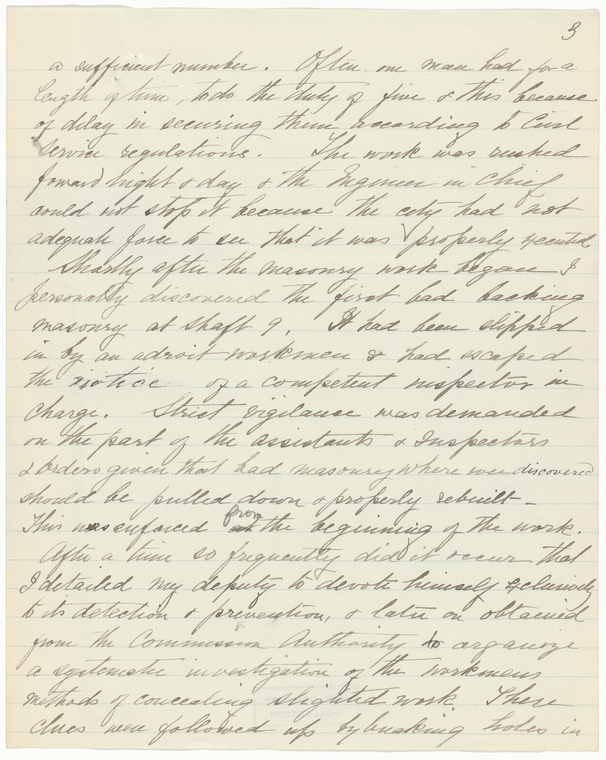 3
a sufficient number. Often one man had for a
length of time, to do the duty of five & this because
of delay in securing them according to Civil
Service regulations. The work was rushed
forward night & day & the Engineer in Chief
could not stop it because the city had not
adequate force to see that it was properly executed
Shortly after the masonry work began I
personally discovered the first bad backing
masonry at Shaft 9. It had been slipped
in by an adroit workmen & had escaped
the notice of a competent inspector in
charge. Strict vigilance was demanded
on the part of the assistants & Inspectors
& orders given that bad masonry where ever discovered
should be pulled down & properly rebuilt -
This was enforced from the beginning of the work.
After a time so frequently did it occur that
I detailed my deputy to devote himself exclusively
to its detection & prevention, & later on obtained
from the Commission Authority to organize
a systematic investigation of the workmens
methods of concealing slighted work. These
clues were followed up by breaking holes in